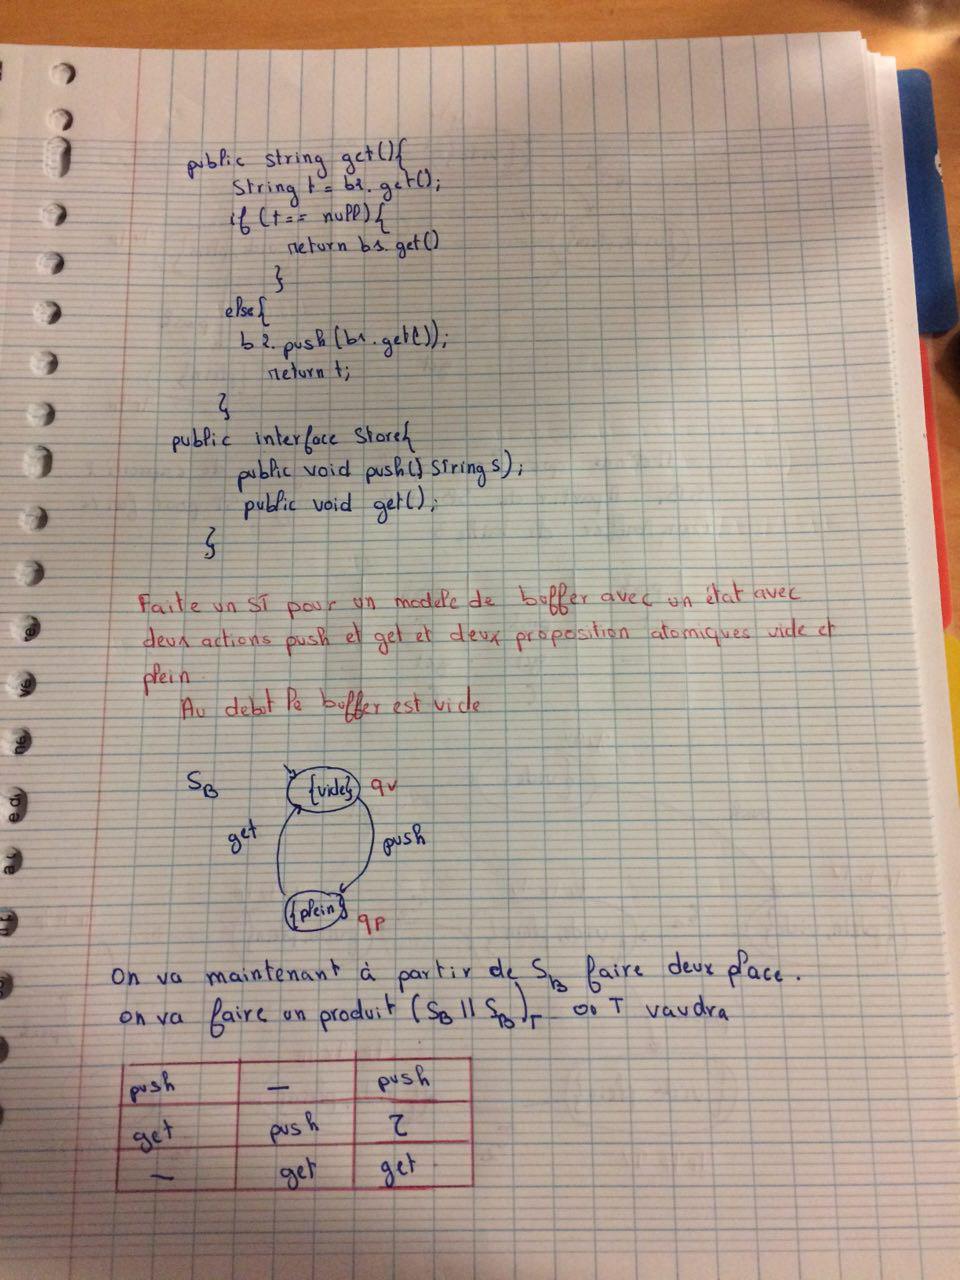 public string get(){
String t = b2.get();
if (t == null){
return b1.get()
}
else{
b2.push(b1.get());
return t;
}
public interface Store{
public void push() String s);
public void get();
}
Faite un ST pour un modele de buffer avec un état avec
deux actions push et get et deux proposition atomiques vide et
plein
Au debut le buffer est vide
S_B
{vide}
qv
get
push
{plein}
qp
On va maintenant à partir de S_B faire deux place.
on va faire un produit (S_B || S_B)_T où T vaudra
push — push
get push τ
— get get